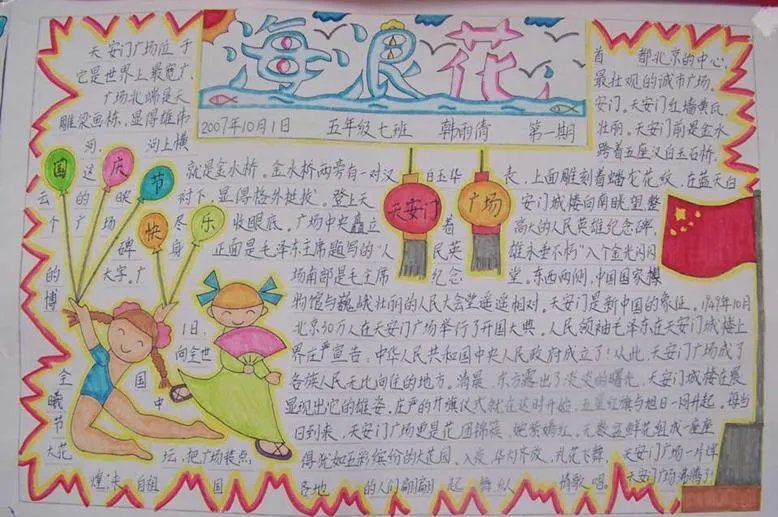 海浪花
2007年10月1日 五年级七班 韩雨倩 第一期
国庆节快乐
天安门广场
天安门广场位于首都北京的中心,
它是世界上最宽广、最壮观的城市广场。
广场北端是天安门。天安门红墙黄瓦,
雕梁画栋,显得雄伟壮丽。天安门前是金水
河,河上横跨着五座汉白玉石桥,
这就是金水桥。金水桥两旁有一对汉白玉华表,上面雕刻着蟠龙花纹,在蓝天白
云的映衬下,显得格外挺拔。登上天安门城楼向南眺望整
个广场尽收眼底。广场中央矗立着高大的人民英雄纪念碑,
碑身正面是毛泽东主席题写的“人民英雄永垂不朽”八个金光闪闪
的大字。广场南部是毛主席纪念堂。东西两侧,中国国家
博物馆与巍峨壮丽的人民大会堂遥遥相对。天安门是新中国的象征。1949年10月
1日,北京30万人在天安门广场举行了开国大典。人民领袖毛泽东在天安门城楼上
向全世界庄严宣告:中华人民共和国中央人民政府成立了!从此,天安门广场成了
全国各族人民无比向往的地方。清晨,东方露出了淡淡的曙光,天安门城楼在晨
曦中显现出它的雄姿。庄严的升旗仪式就在这时开始,五星红旗与旭日一同升起。每当
节日到来,天安门广场更是花团锦簇,姹紫嫣红。无数盆鲜花组成一座座
大花坛,把广场装点得犹如五彩缤纷的大花园。入夜,华灯齐放,礼花飞舞,天安门广场一片辉
煌。来自祖国各地的人们翩翩起舞纵情歌唱。天安门广场沸腾了!